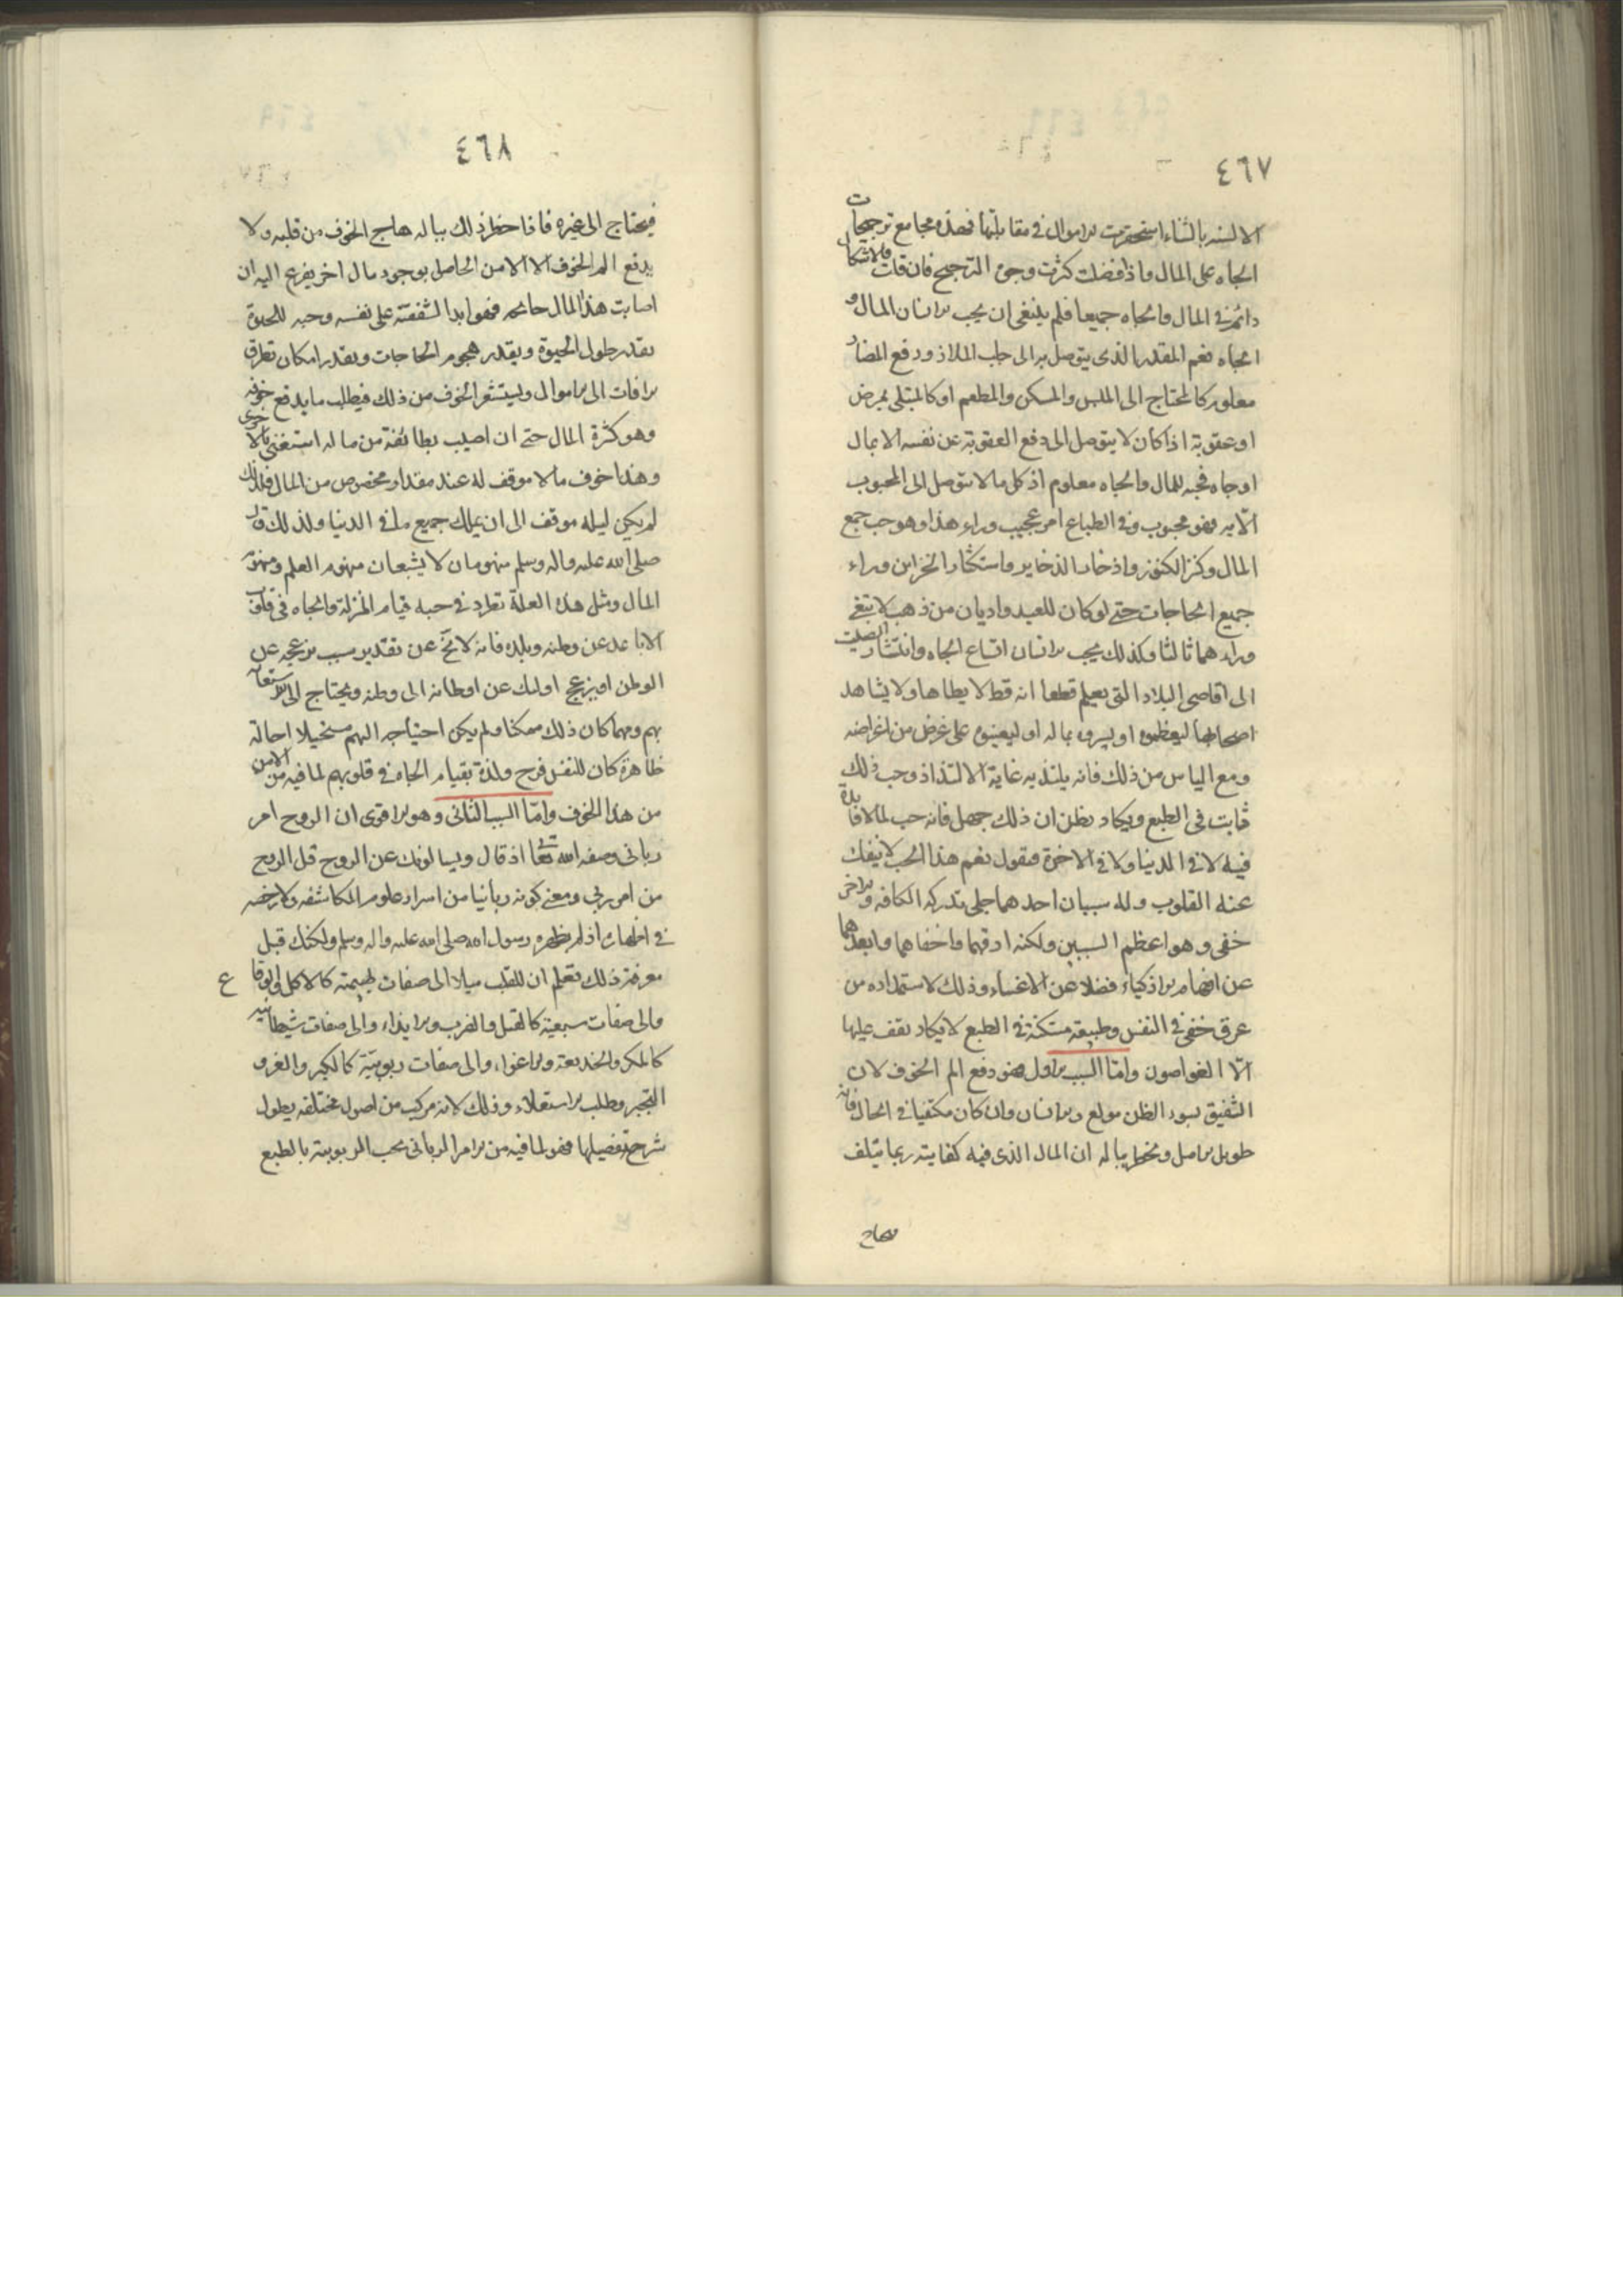 ٤٦٧
الالسنه بالثناء استحقرت الاموال فى مقابلتها فهذه مجامع ترجيحات
الجاه على المال واذا فصلت كثرت وجوه الترجيح فان قلت فالاشكال
دائم فى المال والجاه جميعا فلم ينبغى ان يحب الانسان المال و
الجاه نعم المقدر الذى يتوصل به الى جلب الملاذ ودفع المضار
معلوم كالمحتاج الى الملبس والمسكن والمطعم او كالمبتلى بمرض
او عقوبة اذا كان لا يتوصل الى دفع العقوبة عن نفسه الا بمال
او جاه فحبه للمال والجاه معلوم اذ كل ما لا يتوصل الى المحبوب
الّا به فهو محبوب وفى الطباع امر عجيب وراء هذا وهو حب جمع
المال وكنز الكنوز واذخار الذخاير واستكثار الخزاين وراء
جميع الحاجات حتى لو كان للعبد واديان من ذهب لابتغى
وراءهما ثالثا وكذلك يحب الانسان اتساع الجاه وانتشار الصيت
الى اقاصى البلاد التى يعلم قطعا انه قط لا يطاها ولا يشاهد
اصحابها ليعظموه او يبروه بماله او ليعينوه على غرض من اغراضه
ومع الياس من ذلك فانه يلتذ به غاية الالتذاذ وحب ذلك
ثابت فى الطبع ويكاد يظن ان ذلك جهل فانه حب لما لا فايدة
فيه لا فى الدنيا ولا فى الاخرة فنقول نعم هذا الحب لا ينفك
عنه القلوب وله سببان احدهما جلى تدركه الكافه والاخر
خفى وهو اعظم السببين ولكنه ادقهما واخفاهما وابعدهما
عن افهام الاذكياء فضلا عن الاغبياء وذلك لاستمداده من
عرق خفى فى النفس وطبيعة مستكنة فى الطبع لا يكاد يقف عليها
الّا الغواصون وامّا السبب الاول فهو دفع الم الخوف لان
الشفيق بسوء الظن مولع والانسان وان كان مكتفيا فى الحال فانه
طويل الامل ويخطر بباله ان المال الذى فيه كفايته ربما يتلف
٤٦٨
فيحتاج الى غيره فاذا خطر ذلك بباله هاج الخوف من قلبه ولا
يدفع الم الخوف الا الامن الحاصل بوجود مال اخر يفزع اليه ان
اصابت هذا المال جائحه فهو ابدا لشفقته على نفسه وحبه للحيوة
يقدر طول الحيوة ويقدر هجوم الحاجات ويقدر امكان تطرق
الافات الى الاموال ويستشعر الخوف من ذلك فيطلب ما يدفع خوفه
وهو كثرة المال حتى ان اصيب بطائفة من ماله استغنى بالاخرى
وهذا خوف ما لا موقف له عند مقدار مخصوص من المال فلذلك
لم يكن ليله موقف الى ان يملك جميع ما فى الدنيا ولذلك قال
صلى الله عليه واله وسلم منهومان لا يشبعان منهوم العلم ومنهوم
المال ومثل هذه العلة تطرد فى حبه قيام المنزلة والجاه فى قلوب
الاباعد عن وطنه وبلده فانه لا يخ عن تقدير سبب يزعجه عن
الوطن او يزعج اولئك عن اوطانهم الى وطنه ويحتاج الى الاستعانة
بهم ومهما كان ذلك ممكنا ولم يكن احتياجه اليهم مستحيلا احالة
ظاهرة كان للنفس فرح ولذة بقيام الجاه فى قلوبهم لما فيه من الامن
من هذا الخوف وامّا السبب الثانى وهو الاقوى ان الروح امر
ربانى وصفه الله تعالى اذ قال ويسالونك عن الروح قل الروح
من امر ربى ومعنى كونه ربانيا من اسرار علوم المكاشفه ولا رخصه
فى اظهاره اذ لم يظهره رسول الله صلى الله عليه واله وسلم ولكنك قبل
معرفة ذلك تعلم ان للقلب ميلا الى صفات بهيمته كالاكل والوقاع
والى صفات سبعية كالقتل والضرب والايذاء والى صفات شيطانيه
كالمكر والخديعة والاغواء والى صفات ربوبيّة كالكبر والغرو
التجبر وطلب الاستعلاء وذلك لانه مركب من اصول مختلفه يطول
شرح تفصيلها فهو لما فيه من الامر الربانى يحب الربوبية بالطبع